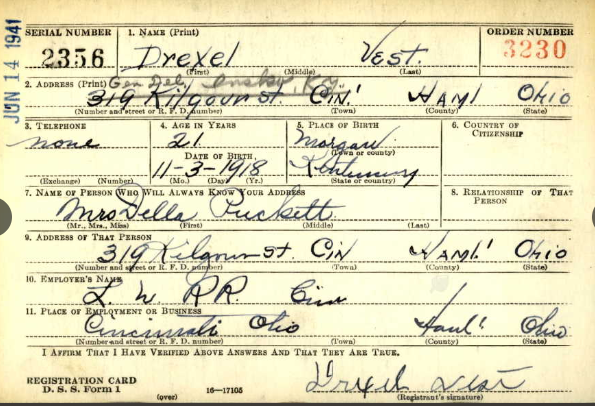 JUN 14 1941
SERIAL NUMBER 1. NAME (Print) ORDER NUMBER
2356 Drexel Vest. 3230
(First) (Middle) (Last)
2. ADDRESS (Print) Gen Del. Ky.
319 Kilgour St. Cin! Haml Ohio
(Number and street or R. F. D. number) (Town) (County) (State)
3. TELEPHONE 4. AGE IN YEARS 5. PLACE OF BIRTH 6. COUNTRY OF CITIZENSHIP
none 21 Morgan
(Town or county)
DATE OF BIRTH
11-3-1918 Kentucky
(Exchange) (Number) (Mo.) (Day) (Yr.) (State or country)
7. NAME OF PERSON WHO WILL ALWAYS KNOW YOUR ADDRESS 8. RELATIONSHIP OF THAT PERSON
Mrs Della Puckett
(Mr., Mrs., Miss) (First) (Middle) (Last)
9. ADDRESS OF THAT PERSON
319 Kilgour St. Cin Haml' Ohio
(Number and street or R. F. D. number) (Town) (County) (State)
10. EMPLOYER'S NAME
L. W. RR. Cin
11. PLACE OF EMPLOYMENT OR BUSINESS
Cincinnati Ohio Haml' Ohio
(Number and street or R. F. D. number) (Town) (County) (State)
I AFFIRM THAT I HAVE VERIFIED ABOVE ANSWERS AND THAT THEY ARE TRUE.
REGISTRATION CARD
D. S. S. Form 1 16—17105 Drexel Vest
(over) (Registrant's signature)